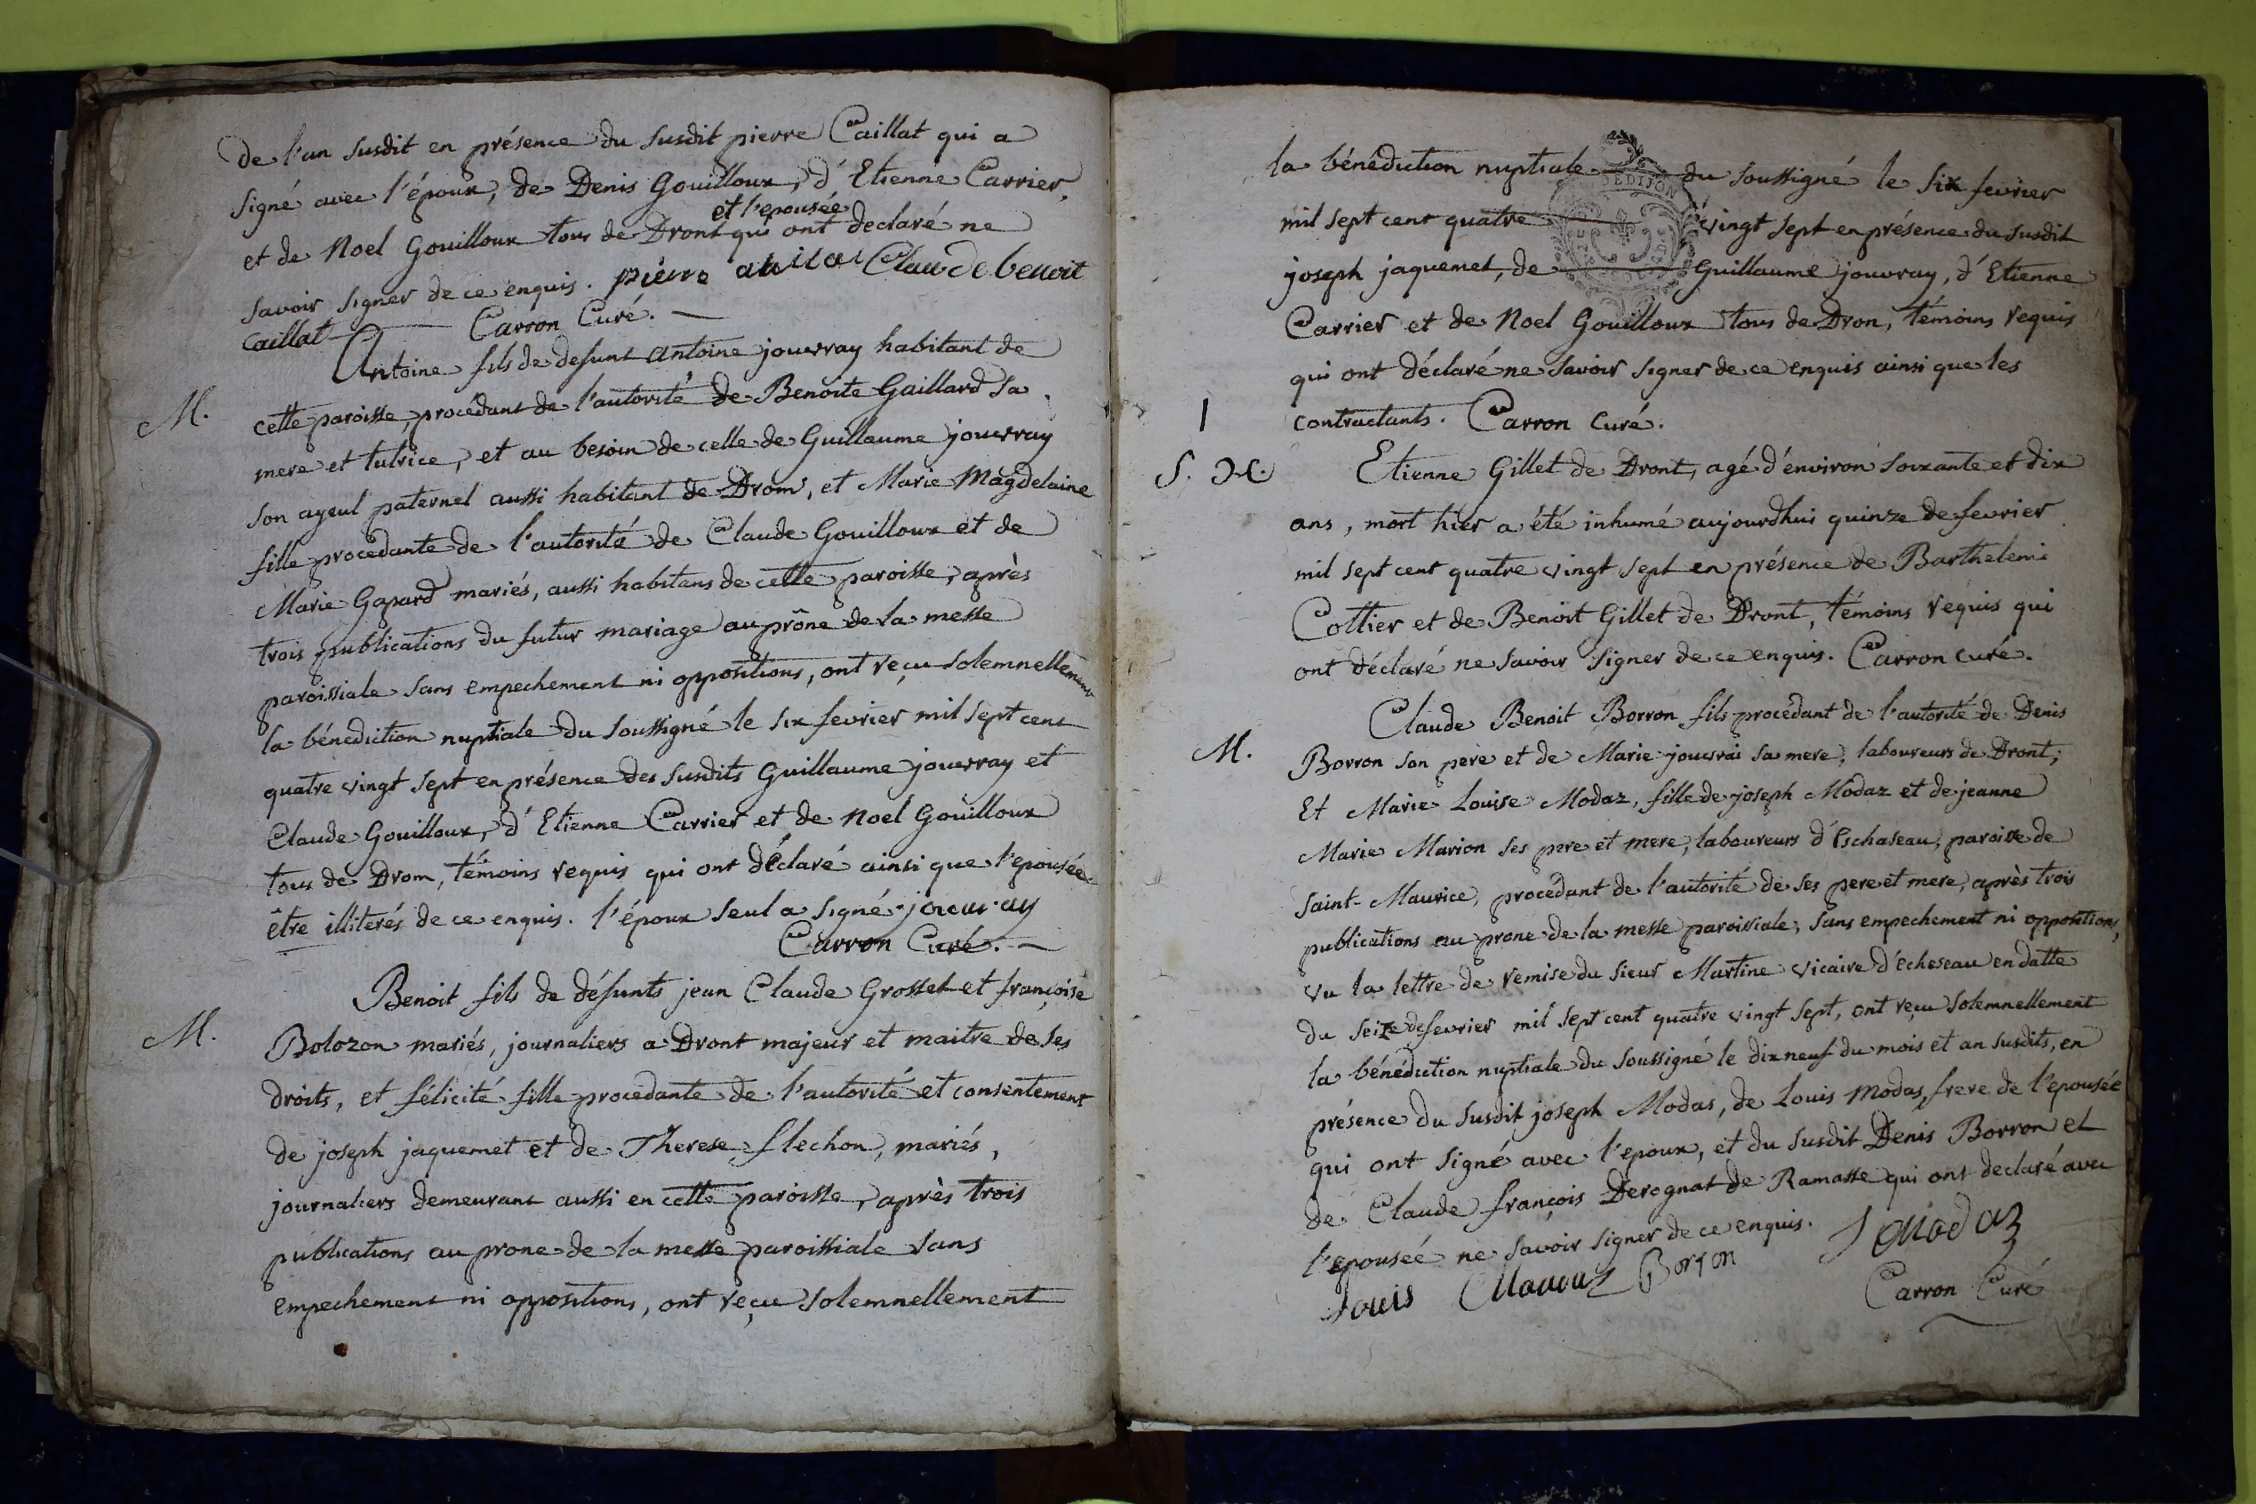 de l'un susdit en présence du susdit pierre Caillat qui a
signé avec l'époux, de Denis Gouilloux, d'Etienne Carrier,
et l'epouseé
et de Noel Gouilloux tous de Dront qui ont declaré ne
savoir signer de ce enquis. pierre Claude benoit
Caillat Carron Curé.
M.
Antoine fils de defunt Antoine jouvray habitant de
cette paroisse, procédant de l'autorité de Benoite Gaillard sa
mere et tutrice, et au besoin de celle de Guillaume jouvray
son ayeul paternel aussi habitant de Drom, et Marie Magdelaine
fille procedante de l'autorité de Claude Gouilloux et de
Marie Gapard mariés, aussi habitans de cette paroisse, après
trois publications du futur mariage au prône de la messe
paroissiale sans empechement ni oppositions, ont reçu solemnellement
la bénediction nuptiale du soussigné le six fevrier mil sept cent
quatre vingt sept en présence des susdits Guillaume jouvray et
Claude Gouilloux, d'Etienne Carrier et de Noel Gouilloux
tous de Drom, témoins requis qui ont déclaré ainsi que l'epousée
être illiterés de ce enquis. l'époux seul a signé. jouvray
Carron Curé.
M.
Benoit fils de défunts jean Claude Grosset et françoise
Bolozon mariés, journaliers a Dront majeur et maitre de ses
droits, et félicité fille procedante de l'autorité et consentement
de joseph jaquemet et de Therese flechon, mariés,
journaliers demeurant aussi en cette paroisse, après trois
publications au prone de la messe paroissiale sans
empechement ni oppositions, ont reçu solemnellement
la bénédiction nuptiale du soussigné le six fevrier
DE DIJON
mil sept cent quatre vingt sept en présence du susdit
joseph jaquemet, de Guillaume jouvray, d'Etienne
Carrier et de Noel Gouilloux tous de Dron, témoins requis
qui ont déclaré ne savoir signer de ce enquis ainsi que les
contractants. Carron curé.
1
S.
Etienne Gillet de Dront, agé d'environ soixante et dix
ans, mort hier a été inhumé aujourdhui quinze de fevrier
mil sept cent quatre vingt sept en présence de Barthelemi
Cottier et de Benoit Gillet de Dront, témoins requis qui
ont déclaré ne savoir signer de ce enquis. Carron curé.
M.
Claude Benoit Borron fils procédant de l'autorité de Denis
Borron son pere et de Marie jouvrai sa mere, laboureurs de Dront;
Et Marie Louise Modaz, fille de joseph Modaz et de jeanne
Marie Marion ses pere et mere, laboureurs d'Eschaseau, paroisse de
saint-Maurice, procédant de l'autorité de ses pere et mere, après trois
publications au prone de la messe paroissiale, sans empechement ni oppositions,
vu la lettre de remise du sieur Martine vicaire d'echeseau en datte
du seize de fevrier mil sept cent quatre vingt sept, ont reçu solemnellement
la bénédiction nuptiale du soussigné le dix neuf du mois et an susdits, en
présence du susdit joseph Modas, de Louis Modas, frere de l'epousée
qui ont signé avec l'epoux, et du susdit Denis Borron et
de Claude françois Derognat de Ramasse qui ont declaré avec
l'epouseé ne savoir signer de ce enquis. J modaz
Louis Modaz Borron
Carron Curé